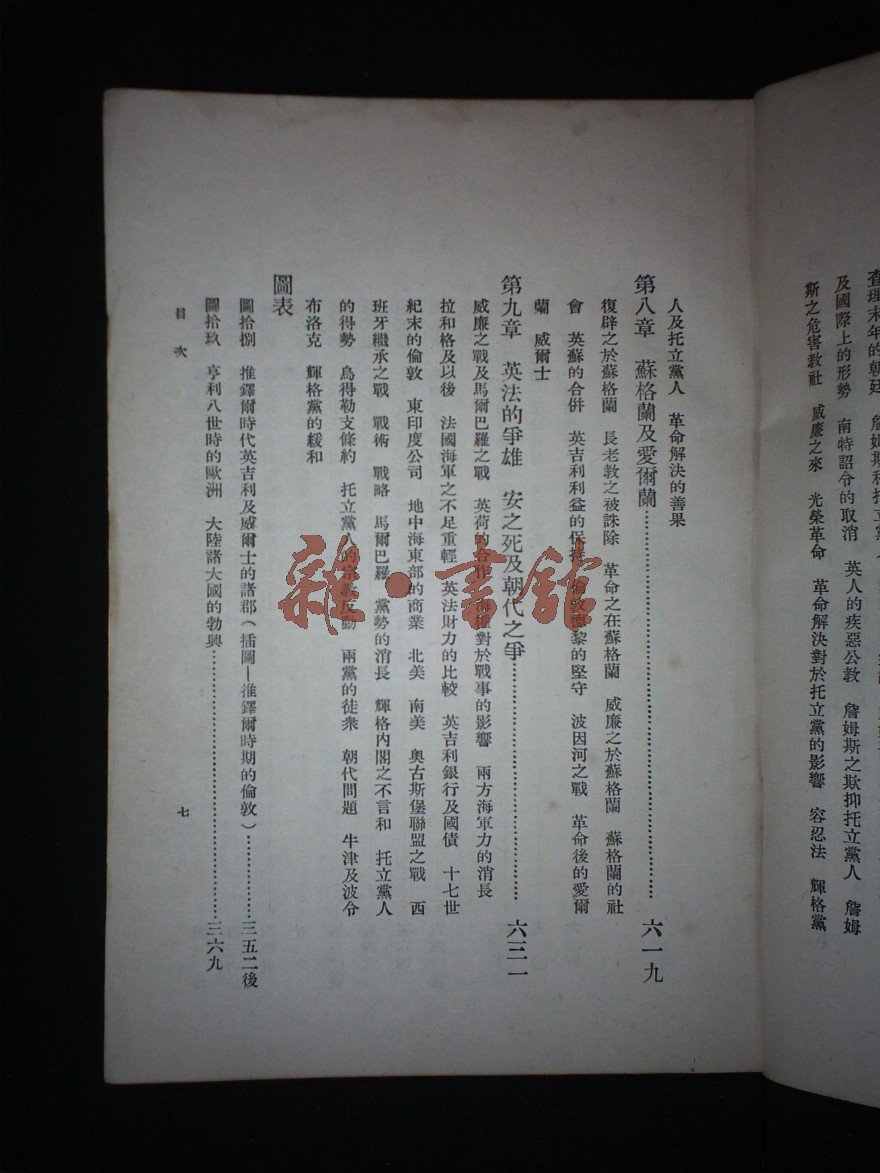 查理末年的朝廷
及國際上的形勢　南特詔令的取消　英人的疾惡公教　詹姆斯之欺抑托立黨人　詹姆
斯之危害教社　威廉之來　光榮革命　革命解決對於托立黨的影響　容忍法　輝格黨
人及托立黨人　革命解決的善果
第八章　蘇格蘭及愛爾蘭……………………六一九
復辟之於蘇格蘭　長老教之被誅除　革命之在蘇格蘭　威廉之於蘇格蘭　蘇格蘭的社
會　英蘇的合併　英吉利利益的保持　倫敦德黎的堅守　波因河之戰　革命後的愛爾
蘭　威爾士
第九章　英法的爭雄　安之死及朝代之爭……………………六三一
威廉之戰及馬爾巴羅之戰　英荷的合作　海權對於戰事的影響　兩方海軍力的消長
拉和格及以後　法國海軍之不足重輕　英法財力的比較　英吉利銀行及國債　十七世
紀末的倫敦　東印度公司　地中海東部的商業　北美　南美　奧古斯堡聯盟之戰　西
班牙繼承之戰　戰術　戰略　馬爾巴羅　黨勢的消長　輝格內閣之不言和　托立黨人
的得勢　烏得勒支條約　托立黨人的宗教反動　兩黨的徒衆　朝代問題　牛津及波令
布洛克　輝格黨的緩和
圖表
圖拾捌　推鐸爾時代英吉利及威爾士的諸郡（插圖—推鐸爾時期的倫敦）……………三五二後
圖拾玖　亨利八世時的歐洲　大陸諸大國的勃興……………………三六九
目次
七
雜·書館